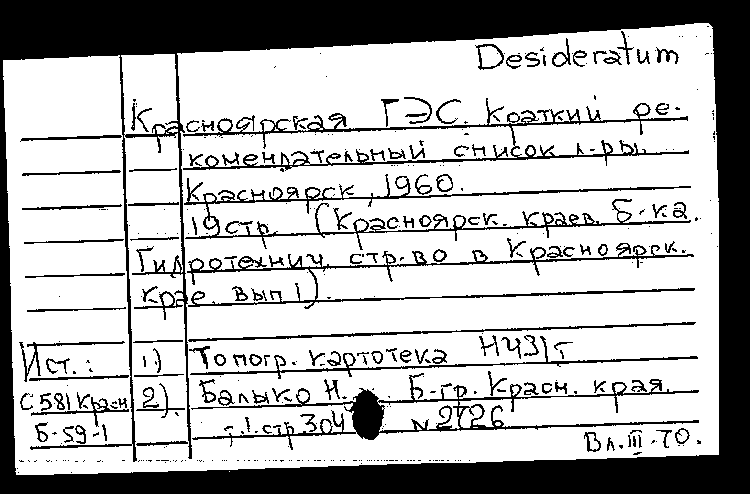 Desideratum
Красноярская ГЭС. Краткий ре-
комендательный список л-ры.
Красноярск, 1960.
19 стр (Красноярск. краев. б-ка.
Гидротехнич. стр-во в Красноярск.
крае. вып 1).
Ист.: 1) Топогр. картотека
С 581 Красн 2). Балыко Н. Б-гр. Красн. края.
Б-59-1 т.1. стр 304 № 2726
Вл. III-70.